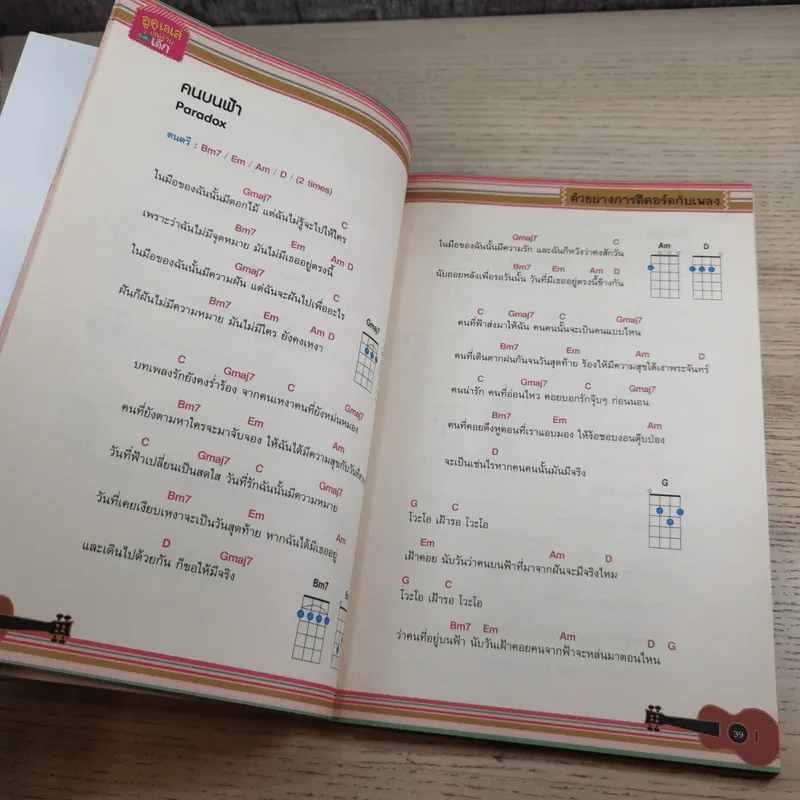 อูคูเลเล่
เด็ก
คนบนฟ้า
Paradox
ดนตรี : Bm7 / Em / Am / D / (2 times)
Gmaj7 C
ในมือของฉันนั้นมีดอกไม้ แต่ฉันไม่รู้จะไปให้ใคร
Bm7 Em Am D
เพราะว่าฉันไม่มีจุดหมาย มันไม่มีเธออยู่ตรงนี้
Gmaj7 C
ในมือของฉันนั้นมีความฝัน แต่ฉันจะฝันไปเพื่ออะไร
Bm7 Em Am D
ฝันก็ฝันไม่มีความหมาย มันไม่มีใคร ยังคงเหงา
Gmaj7
C Gmaj7 C Gmaj7
บทเพลงรักยังคงร่ำร้อง จากคนเหงาคนที่ยังหม่นหมอง
Bm7 Em Am
คนที่ยังตามหาใครจะมาจับจอง ให้ฉันได้มีความสุขกับวันที่
C Gmaj7 C Gmaj7
วันที่ฟ้าเปลี่ยนเป็นสดใส วันที่รักฉันนั้นมีความหมาย
Bm7 Em Am
วันที่เคยเงียบเหงาจะเป็นวันสุดท้าย หากฉันได้มีเธออยู่
D Gmaj7
และเดินไปด้วยกัน ก็ขอให้มีจริง
Bm7
ตัวอย่างการตีคอร์ดกับเพลง
Gmaj7 C
ในมือของฉันนั้นมีความรัก และฉันก็หวังว่าคงสักวัน
Bm7 Em Am D
นับถอยหลังเพื่อรอวันนั้น วันที่มีเธออยู่ตรงนี้ข้างกัน
Am D
C Gmaj7 C Gmaj7
คนที่ฟ้าส่งมาให้ฉัน คนคนนั้นจะเป็นคนแบบไหน
Bm7 Em Am D
คนที่เดินตากฝนกันจนวันสุดท้าย ร้องให้มีความสุขใต้เงาพระจันทร์
C Gmaj7 C Gmaj7
คนน่ารัก คนที่อ่อนไหว คอยบอกรักจุ๊บๆ ก่อนนอน
Bm7 Em Am
คนที่คอยดึงหูตอนที่เราแอบมอง ให้ง้อชอบงอนตุ๊บป่อง
D
จะเป็นเช่นไรหากคนคนนั้นมันมีจริง
G
G C
โวะโอ เฝ้ารอ โวะโอ
Em Am D
เฝ้าคอย นับวันว่าคนบนฟ้าที่มาจากฝันจะมีจริงไหม
G C
โวะโอ เฝ้ารอ โวะโอ
Bm7 Em Am D G
ว่าคนที่อยู่บนฟ้า นับวันเฝ้าคอยคนจากฟ้าจะหล่นมาตอนไหน
39